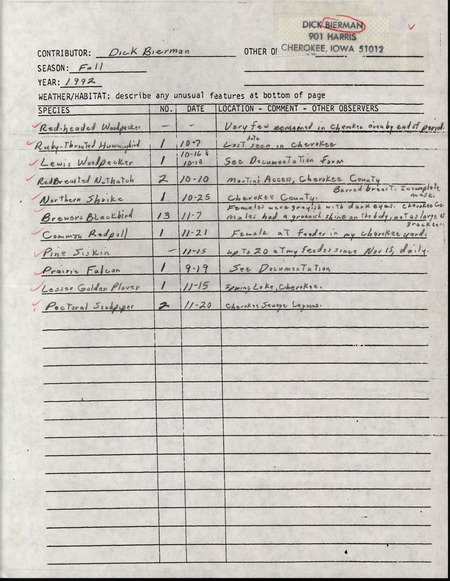 DICK BIERMAN
901 HARRIS
CHEROKEE, IOWA 51012
CONTRIBUTOR: Dick Bierman OTHER O
SEASON: Fall
YEAR: 1992
WEATHER/HABITAT: describe any unusual features at bottom of page
SPECIES NO. DATE LOCATION - COMMENT - OTHER OBSERVERS
Red-headed Woodpecker - - Very few remained in Cherokee area by end of period.
Ruby-Throated Hummingbird 1 10-7 Last date seen in Cherokee
Lewis Woodpecker 1 10-16 & 10-18 See Documentation Form
Red Breasted Nuthatch 2 10-10 Martin's Access, Cherokee County
Northern Shrike 1 10-25 Cherokee County. Barred breast. incomplete mask.
Brewers Blackbird 13 11-7 Females were grayish with dark eyes. Cherokee Co. Males had a greenish shine on the body, not as large as grackle.
Common Redpoll 1 11-21 Female at feeder in my Cherokee yard.
Pine Siskin - 11-15 up to 20 at my feeder since Nov 15, daily.
Prairie Falcon 1 9-19 See Documentation
Lesser Golden Plover 1 11-15 Spring Lake, Cherokee.
Pectoral Sandpiper 2 11-20 Cherokee Sewage Lagoons.